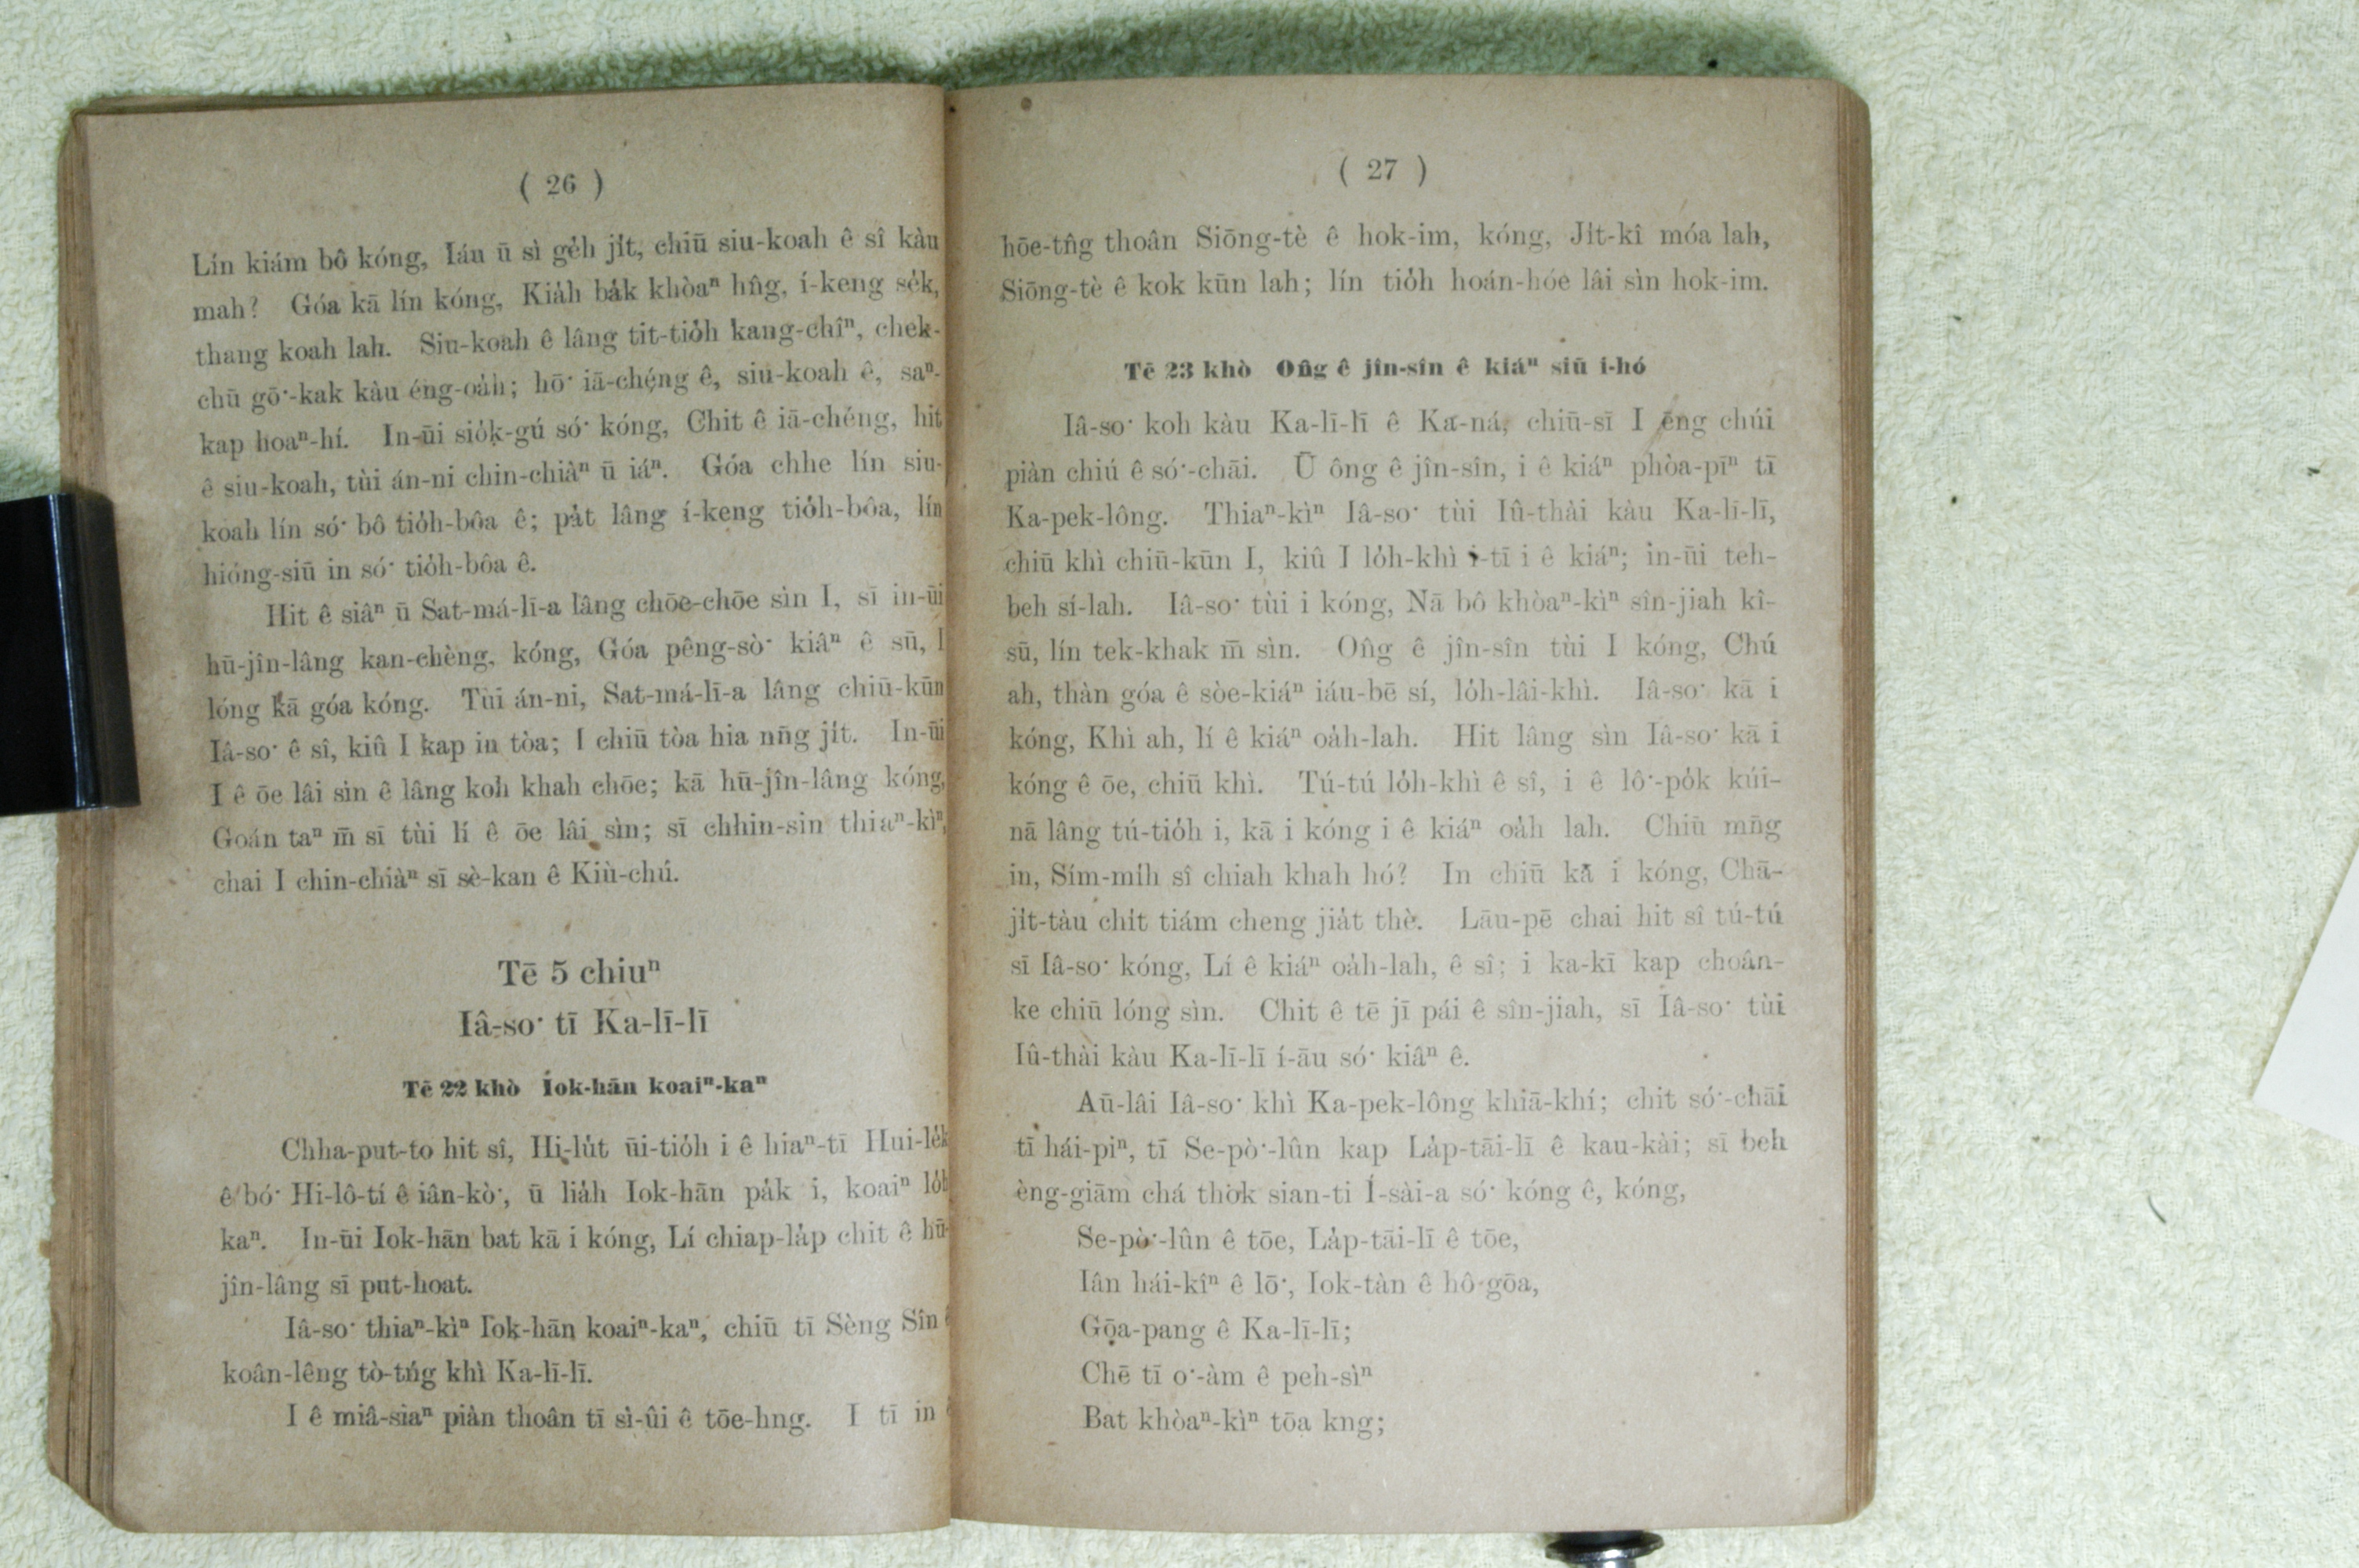 ( 26 )
Lín kiám bô kóng, Iáu ū sì ge̍h ji̍t, chiū siu-koah ê sî kàu
mah? Góa kā lín kóng, Kia̍h ba̍k khòaⁿ hn̂g, í-keng se̍k,
thang koah lah. Siu-koah ê lâng tit-tio̍h kang-chîⁿ, chek-
chū gō͘-kak kàu éng-oa̍h; hō͘ iā-chéng ê, siu-koah ê, saⁿ-
kap hoaⁿ-hí. In-ūi sio̍k-gú só͘ kóng, Chit ê iā-chéng, hit
ê siu-koah, tùi án-ni chin-chiàⁿ ū iáⁿ. Góa chhe lín siu-
koah lín só͘ bô tio̍h-bôa ê; pa̍t lâng í-keng tio̍h-bôa, lín
hióng-siū in só͘ tio̍h-bôa ê.
Hit ê siâⁿ ū Sat-má-lī-a lâng chōe-chōe sìn I, sī in-ūi
hū-jîn-lâng kan-chèng, kóng, Góa pêng-sò͘ kiâⁿ ê sū, I
lóng kā góa kóng. Tùi án-ni, Sat-má-lī-a lâng chiū-kūn
Iâ-so͘ ê sî, kiû I kap in tòa; I chiū tòa hia nn̄g ji̍t. In-ūi
I ê ōe lâi sìn ê lâng koh khah chōe; kā hū-jîn-lâng kóng,
Goán taⁿ m̄ sī tùi lí ê ōe lâi sìn; sī chhin-sin thiaⁿ-kìⁿ,
chai I chin-chiàⁿ sī sè-kan ê Kiù-chú.
Tē 5 chiuⁿ
Iâ-so͘ tī Ka-lī-lī
Tē 22 khò Iok-hān koaiⁿ-kaⁿ
Chha-put-to hit sî, Hi-lu̍t ūi-tio̍h i ê hiaⁿ-tī Hui-le̍k
ê bó͘ Hi-lô-tí ê iân-kò͘, ū lia̍h Iok-hān pa̍k i, koaiⁿ lo̍h
kaⁿ. In-ūi Iok-hān bat kā i kóng, Lí chiap-la̍p chit ê hū-
jîn-lâng sī put-hoat.
Iâ-so͘ thiaⁿ-kìⁿ Iok-hān koaiⁿ-kaⁿ, chiū tī Sèng Sîn ê
koân-lêng tò-tńg khì Ka-lī-lī.
I ê miâ-siaⁿ piàn thoân tī sì-ûi ê tōe-hng. I tī in ê
( 27 )
hōe-tn̂g thoân Siōng-tè ê hok-im, kóng, Ji̍t-kî móa lah,
Siōng-tè ê kok kūn lah; lín tio̍h hoán-hóe lâi sìn hok-im.
Tē 23 khò Ông ê jîn-sîn ê kiáⁿ siū i-hó
Iâ-so͘ koh kàu Ka-lī-lī ê Ka-ná, chiū-sī I ēng chúi
piàn chiú ê só͘-chāi. Ū ông ê jîn-sîn, i ê kiáⁿ phòa-pīⁿ tī
Ka-pek-lông. Thiaⁿ-kìⁿ Iâ-so͘ tùi Iû-thài kàu Ka-lī-lī,
chiū khì chiū-kūn I, kiû I lo̍h-khì i-tī i ê kiáⁿ; in-ūi teh-
beh sí-lah. Iâ-so͘ tùi i kóng, Nā bô khòaⁿ-kìⁿ sîn-jiah kî-
sū, lín tek-khak m̄ sìn. Ông ê jîn-sîn tùi I kóng, Chú
ah, thàn góa ê sòe-kiáⁿ iáu-bē sí, lo̍h-lâi-khì. Iâ-so͘ kā i
kóng, Khì ah, lí ê kiáⁿ oa̍h-lah. Hit lâng sìn Iâ-so͘ kā i
kóng ê ōe, chiū khì. Tú-tú lo̍h-khì ê sî, i ê lô͘-po̍k kúi-
nā lâng tú-tio̍h i, kā i kóng i ê kiáⁿ oa̍h lah. Chiū mn̄g
in, Sím-mi̍h sî chiah khah hó? In chiū kā i kóng, Chā-
ji̍t-tàu chi̍t tiám cheng jia̍t thè. Lāu-pē chai hit sî tú-tú
sī Iâ-so͘ kóng, Lí ê kiáⁿ oa̍h-lah, ê sî; i ka-kī kap choân-
ke chiū lóng sìn. Chit ê tē jī pái ê sîn-jiah, sī Iâ-so͘ tùi
Iû-thài kàu Ka-lī-lī í-āu só͘ kiâⁿ ê.
Aū-lâi Iâ-so͘ khì Ka-pek-lông khiā-khí; chit só͘-chāi
tī hái-piⁿ, tī Se-pò͘-lûn kap La̍p-tāi-lī ê kau-kài; sī beh
èng-giām chá thok sian-ti Í-sài-a só͘ kóng ê, kóng,
Se-pò͘-lûn ê tōe, La̍p-tāi-lī ê tōe,
Iân hái-kîⁿ ê lō͘, Iok-tàn ê hô-gōa,
Gōa-pang ê Ka-lī-lī;
Chē tī o͘-àm ê peh-sìⁿ
Bat khòaⁿ-kìⁿ tōa kng;